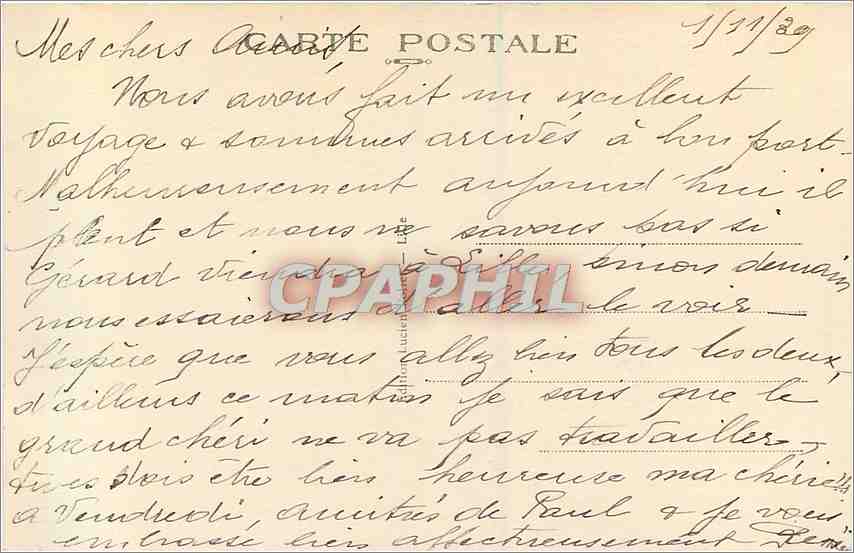 1/11/39
CARTE POSTALE
Mes chers Amis,
Nous avons fait un excellent
voyage & sommes arrivés à bon port -
Malheureusement aujourd'hui il
pleut et nous ne savons pas si
Gérard viendra à Lille, sinon demain
nous essaierons d'aller le voir
J'espère que vous allez bien tous les deux,
d'ailleurs ce matin je sais que le
grand chéri ne va pas travailler -
tu dois être bien heureuse ma chérie
a Vendredi, amitiés de Paul & je vous
embrasse bien affectueusement
Edition Lucien
CPAPHIL